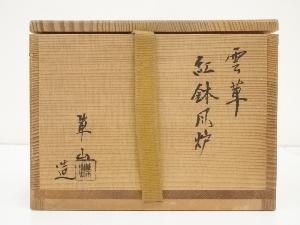 雲華
紅鉢風炉
草山
造